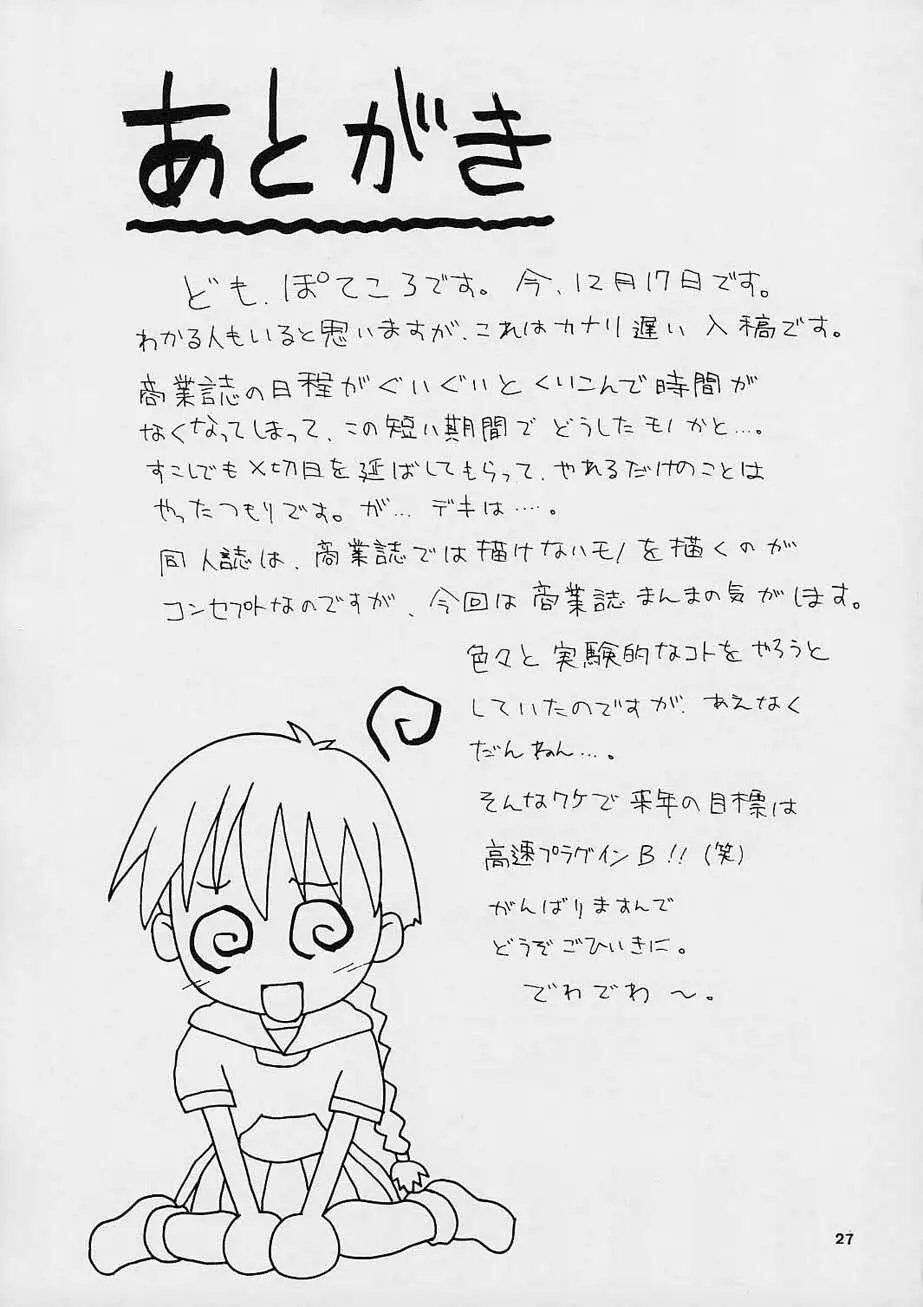 あとがき
ども、ぽてころです。今、12月17日です。
わかる人もいると思いますが、これはカナリ遅い入稿です。
商業誌の日程がぐいぐいとくいこんで時間が
なくなってしまって、この短い期間でどうしたモノかと…。
すこしでも〆切日を延ばしてもらって、やれるだけのことは
やったつもりです。が… デキは……。
同人誌は、商業誌では描けないモノを描くのが
コンセプトなのですが、今回は商業誌まんまの気がします。
色々と実験的なコトをやろうと
していたのですが、あえなく
だんねん…。
そんなワケで来年の目標は
高速プラグインB!!(笑)
がんばりますんで
どうぞごひいきに。
でわでわ〜。
27